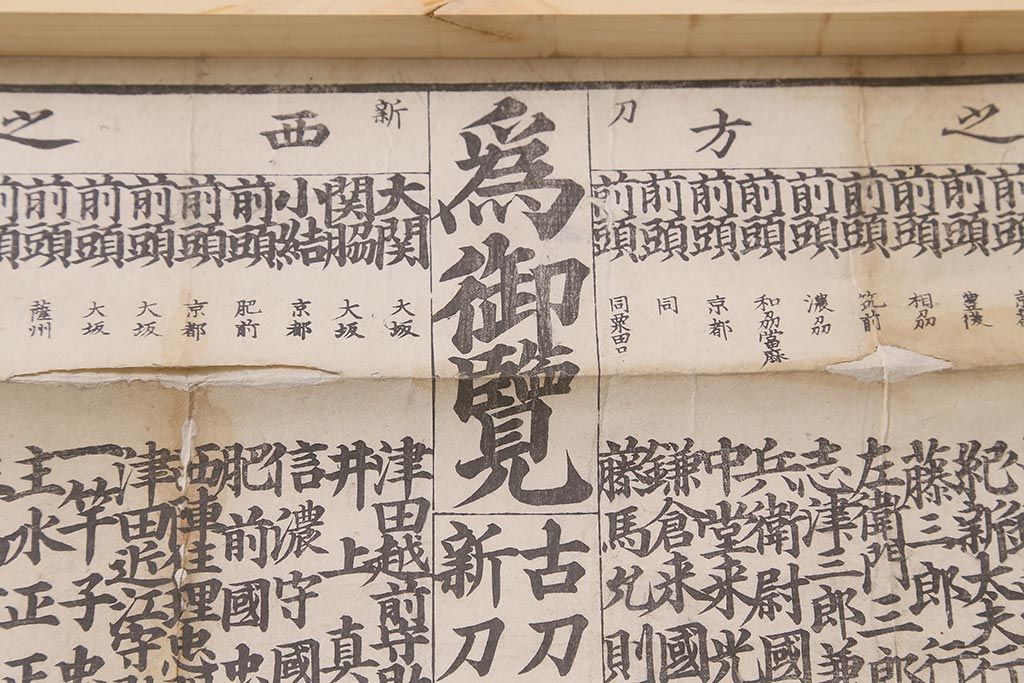 之方刀
前頭
前頭 豊後 紀新太夫行
前頭 相刕 藤三郎行
前頭 筑前 左衛門三郎
前頭 濃刕 志津三郎兼
前頭 和刕當麻 兵衛尉國
前頭 京都 中堂来光
前頭 同 鎌倉来國
前頭 同粟田口 藤馬允則
爲御覽
古刀
新刀
新西之
大関 大坂 津田越前守助
関脇 大坂 井上真
小結 京都 信濃守國
前頭 肥前 肥前國忠
前頭 京都 西陣住埋忠
前頭 大坂 津田近江守
前頭 大坂 一竿子忠
前頭 薩州 主水正正
前頭